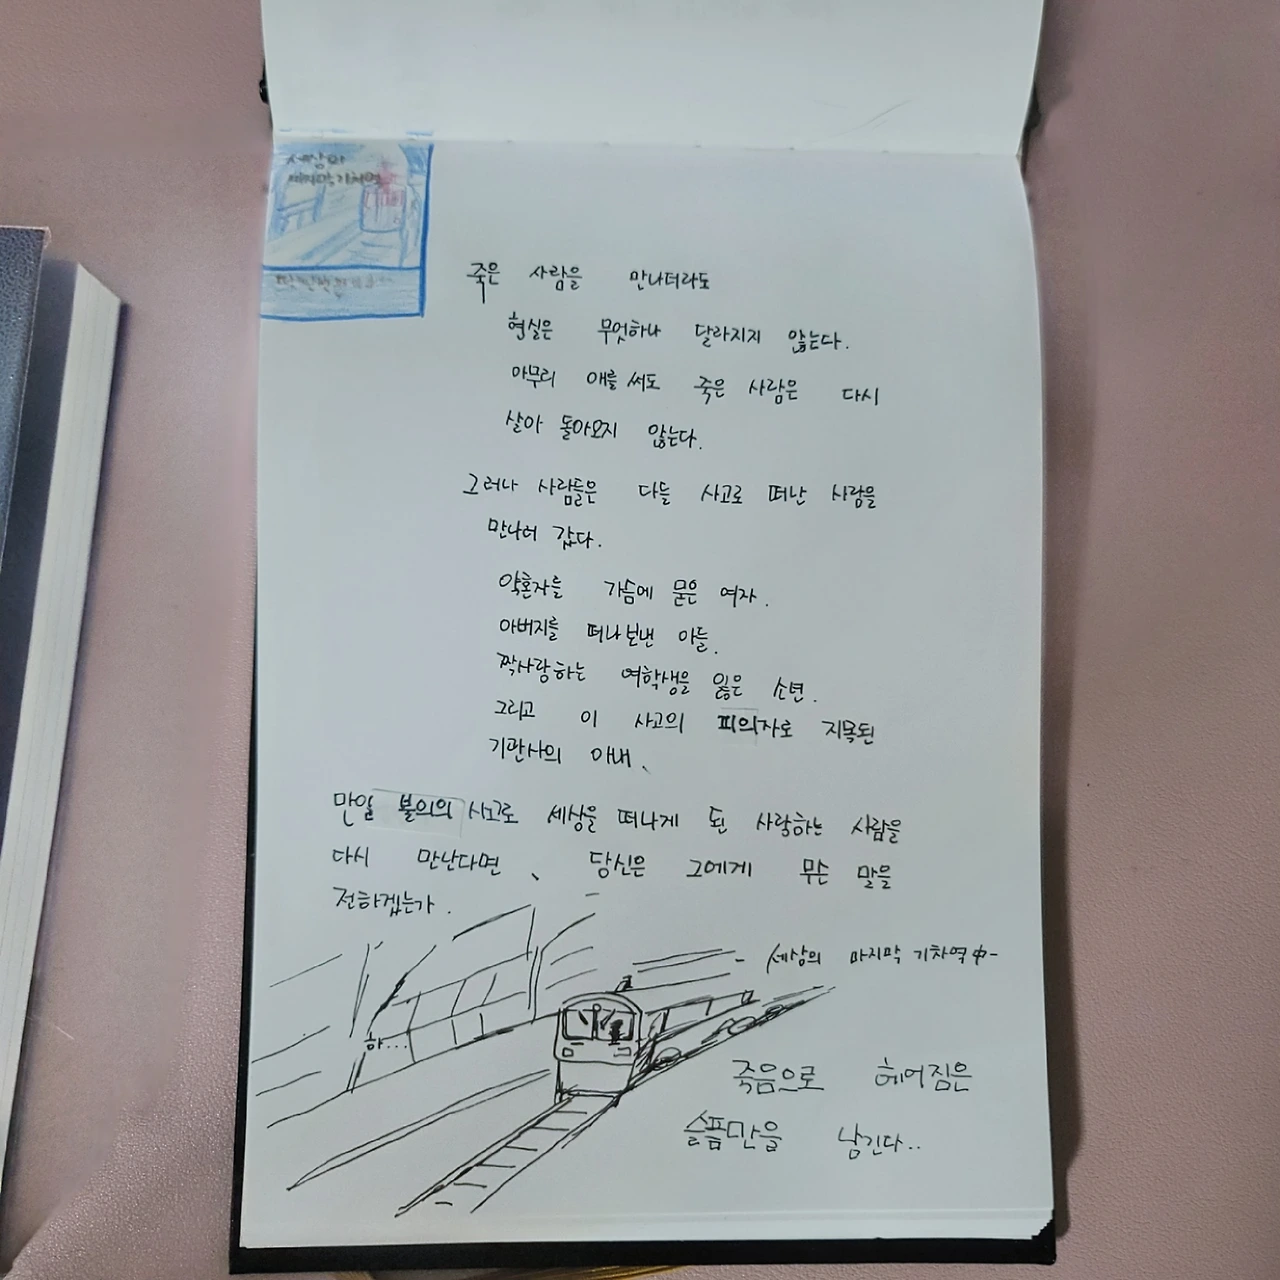 세상의
마지막 기차역
죽은 사람을 만나더라도
현실은 무엇하나 달라지지 않는다.
아무리 애를 써도 죽은 사람은 다시
살아 돌아오지 않는다.
그러나 사람들은 다들 사고로 떠난 사람을
만나러 갔다.
약혼자를 가슴에 묻은 여자.
아버지를 떠나보낸 아들.
짝사랑하는 여학생을 잃은 소년.
그리고 이 사고의 피의자로 지목된
기관사의 아내、
만일 불의의 사고로 세상을 떠나게 된 사랑하는 사람을
다시 만난다면、 당신은 그에게 무슨 말을
전하겠는가.
- 세상의 마지막 기차역 中-
하...
죽음으로 헤어짐은
슬픔만을 남긴다..